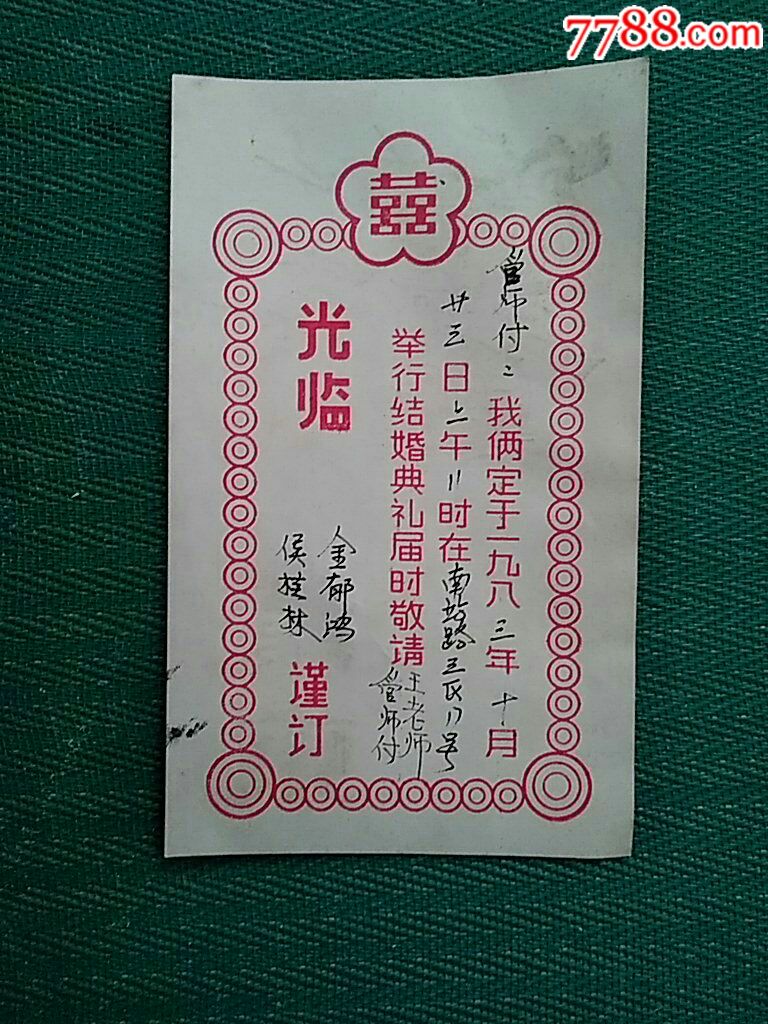 7788.com
囍
管师付：我俩定于一九八三年十月
廿三日上午11时在南站路三区17号
举行结婚典礼届时敬请王老师
管师付
光临
金郁鸿
侯 林
谨订